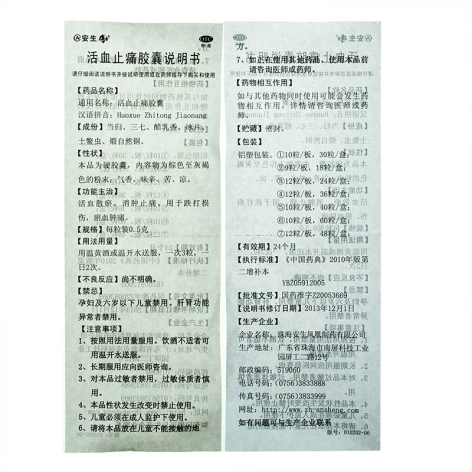 安生
OTC
甲类
活血止痛胶囊说明书
请仔细阅读说明书并按说明使用或在药师指导下购买和使用
【药品名称】
通用名称：活血止痛胶囊
汉语拼音：Huoxue Zhitong Jiaonang
【成份】当归、三七、醋乳香、冰片、
土鳖虫、煅自然铜。
【性状】
本品为硬胶囊，内容物为棕色至灰褐
色的粉末，气香，味辛、苦、凉。
【功能主治】
活血散瘀，消肿止痛，用于跌打损
伤，瘀血肿痛。
【规格】每粒装0.5克
【用法用量】
用温黄酒或温开水送服，一次3粒，一
日2次。
【不良反应】尚不明确。
【禁忌】
孕妇及六岁以下儿童禁用，肝肾功能
异常者禁用。
【注意事项】
1、按照用法用量服用，饮酒不适者可
用温开水送服。
2、长期服用应向医师咨询。
3、对本品过敏者禁用，过敏体质者慎
用。
4、本品性状发生改变时禁止使用。
5、儿童必须在成人监护下使用。
6、请将本品放在儿童不能接触的地
方。
7、如正在使用其他药品，使用本品前
请咨询医师或药师。
【药物相互作用】
如与其他药物同时使用可能会发生药
物相互作用，详情请咨询医师或药
师。
【贮藏】密封。
【包装】
铝塑包装，①10粒/板，30粒/盒；
②9粒/板，18粒/盒；
③12粒/板，24粒/盒；
④12粒/板，36粒/盒；
⑤10粒/板，40粒/盒；
⑥10粒/板，60粒/盒；
⑦12粒/板，48粒/盒。
【有效期】24个月
【执行标准】《中国药典》2010年版第
二增补本
YBZ05912005
【批准文号】国药准字Z20053669
【说明书修订日期】2013年12月1日
【生产企业】
企业名称：珠海安生凤凰制药有限公司
生产地址：广东省珠海市南屏科技工业
园屏工二路12号
邮政编码：519060
电话号码：(0756)3833888
传真号码：(0756)3833999
网址：http://www.zh-ansheng.com
如有问题可与生产企业联系
版号：010202-06